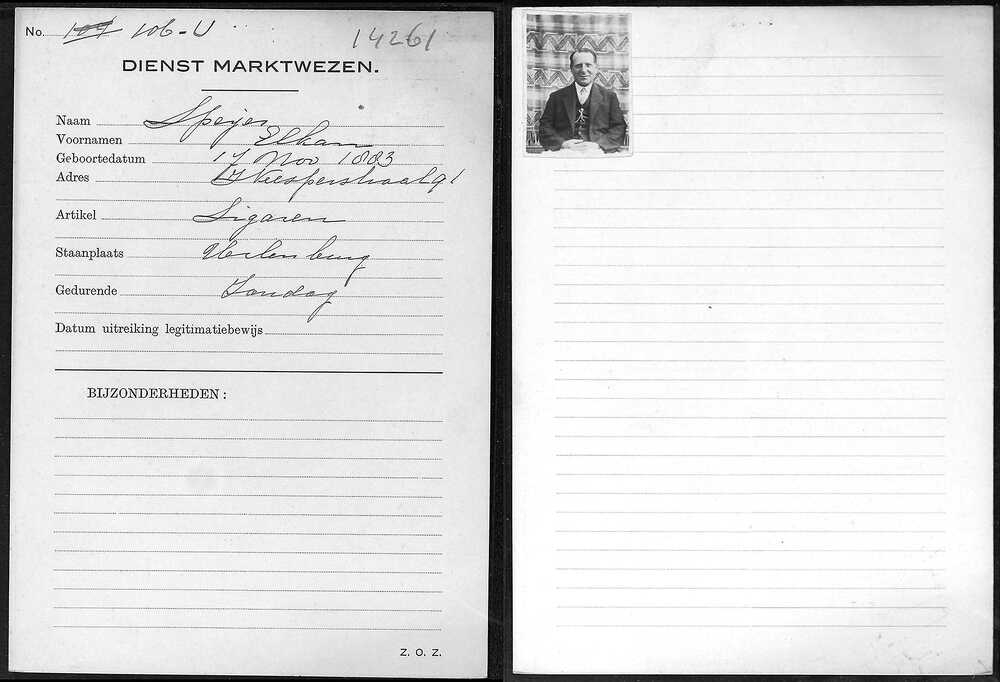 No. 107 106-U
14261
DIENST MARKTWEZEN.
Naam Speijer
Voornamen Elkan
Geboortedatum 17 Nov 1883
Adres N Keesperstraat 91
Artikel Sigaren
Staanplaats Uilenburg
Gedurende Zondag
Datum uitreiking legitimatiebewijs
BIJZONDERHEDEN:
Z. O. Z.